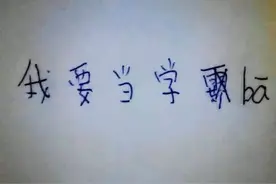 我要当学bā